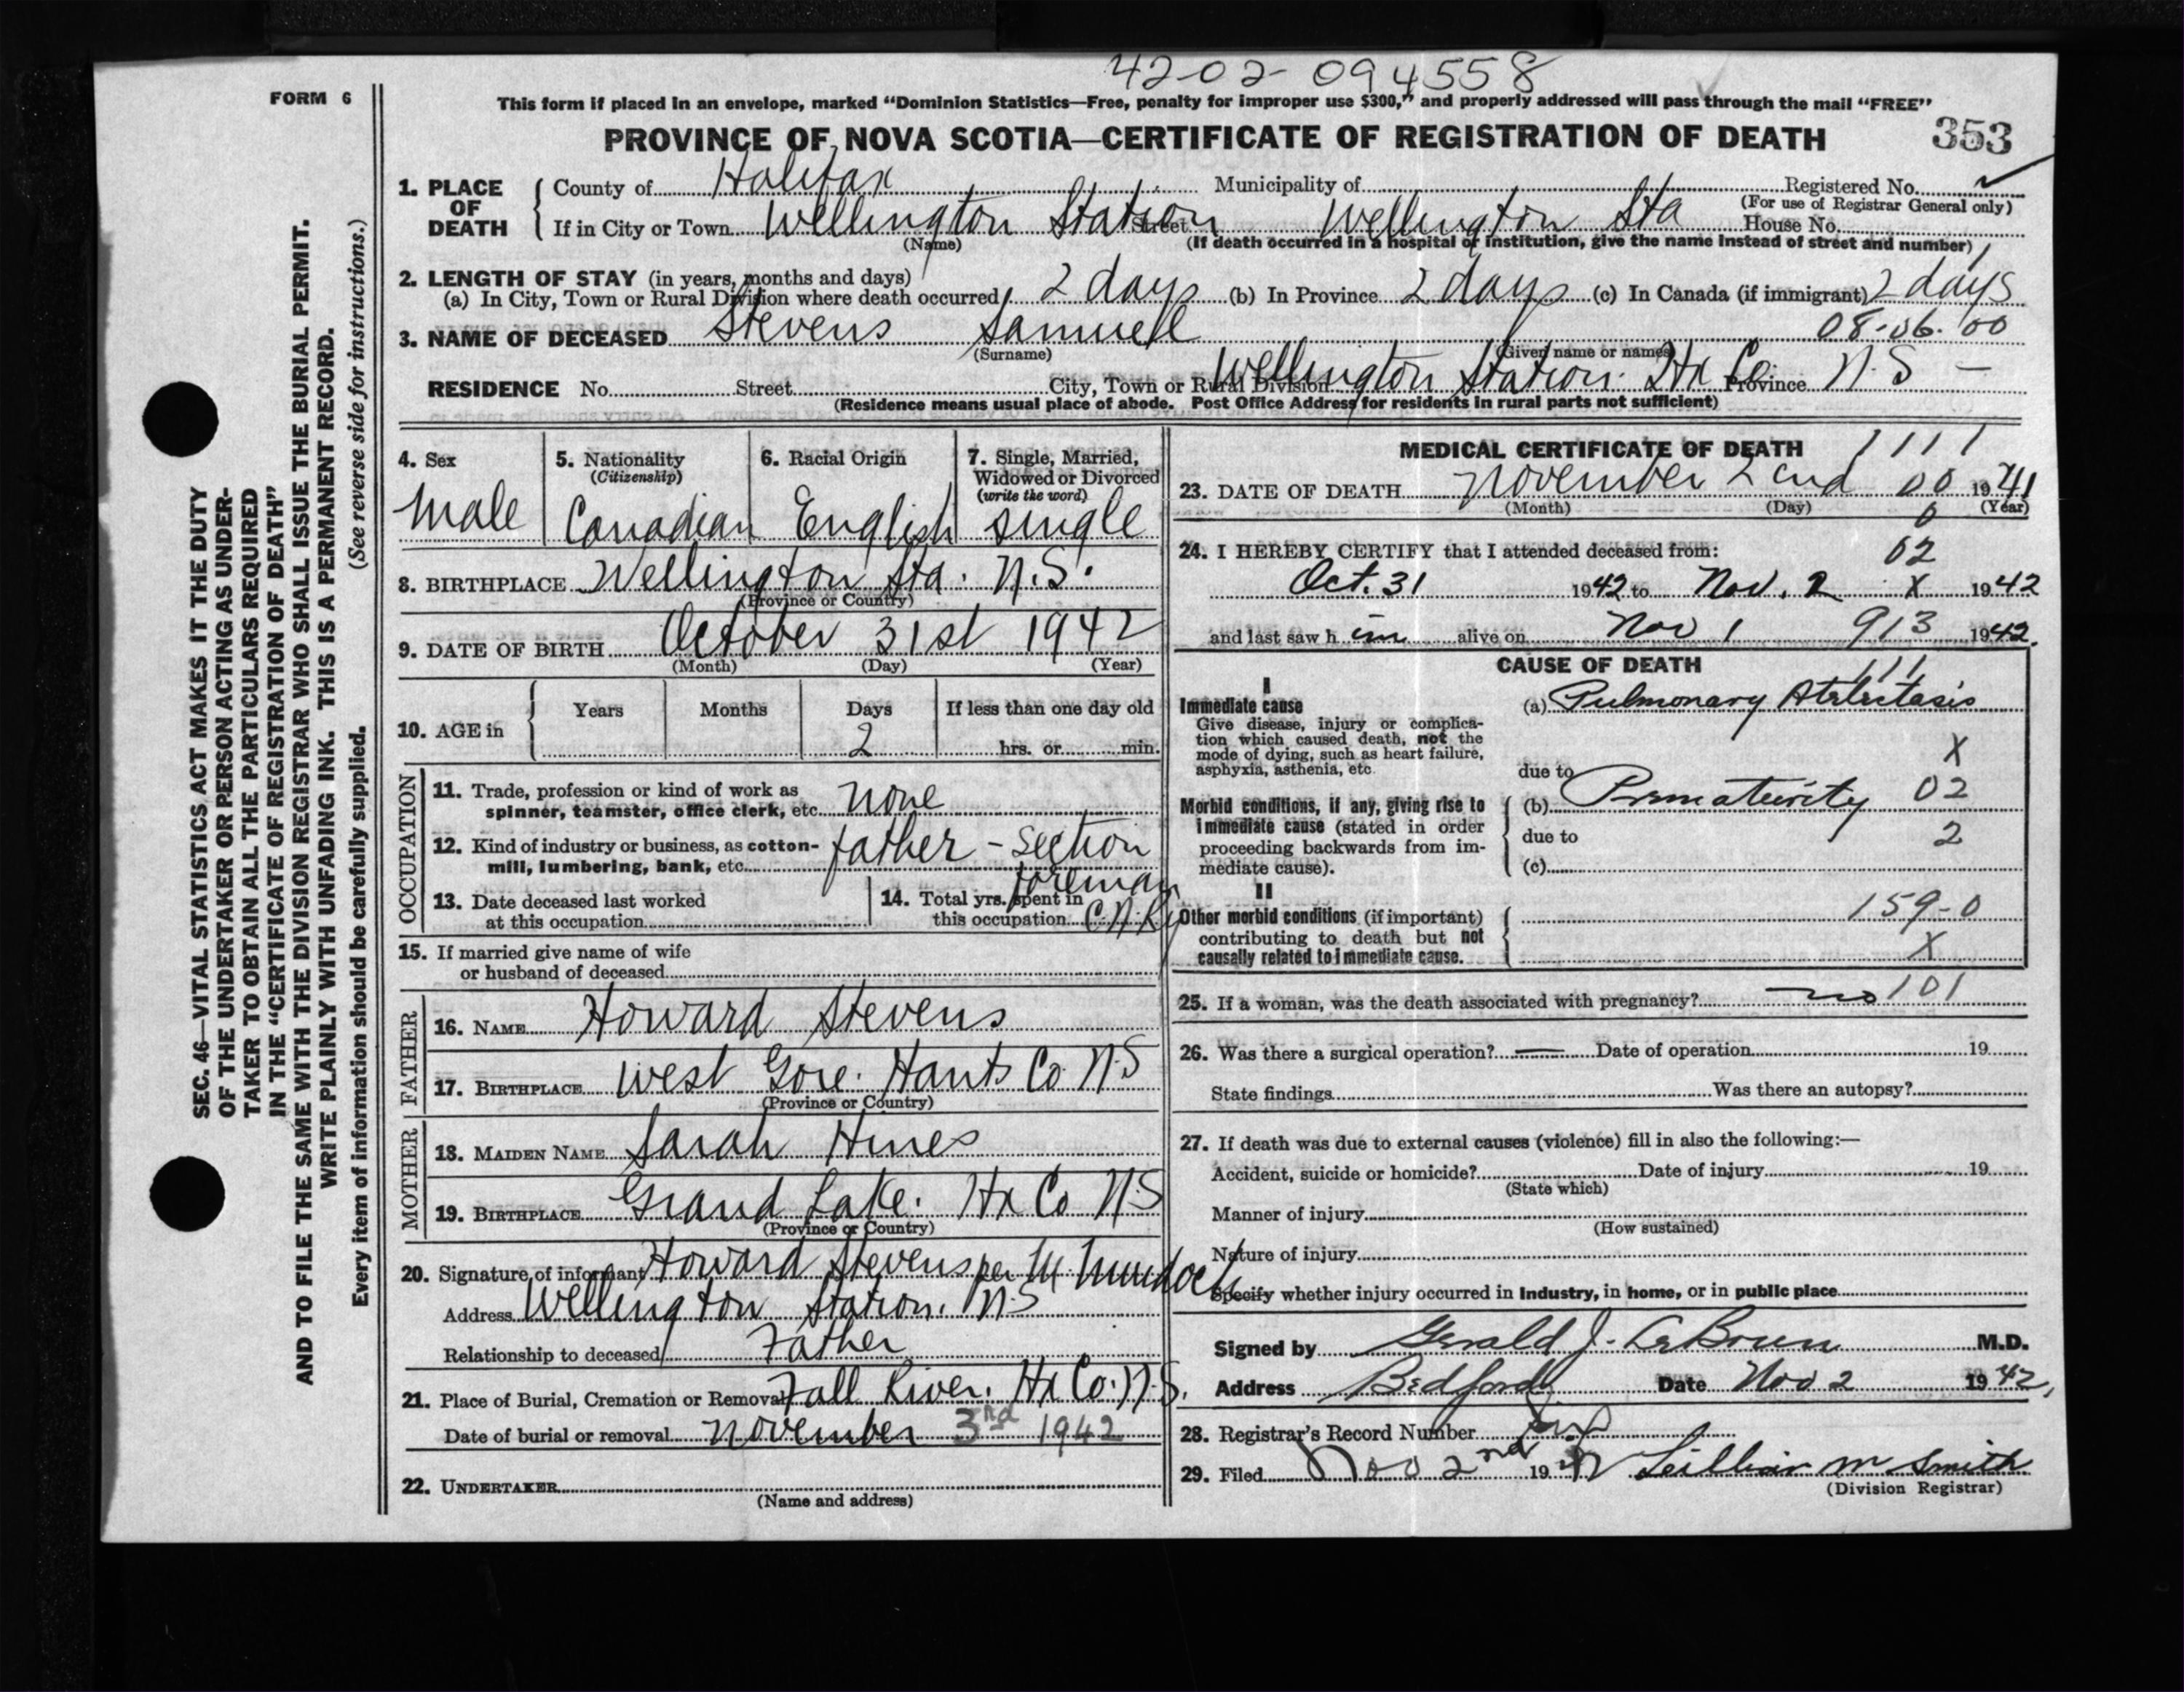 42-02-094558
FORM 6
This form if placed in an envelope, marked “Dominion Statistics—Free, penalty for improper use $300,” and properly addressed will pass through the mail “FREE”
PROVINCE OF NOVA SCOTIA—CERTIFICATE OF REGISTRATION OF DEATH 353
1. PLACE OF DEATH
County of Halifax Municipality of Registered No.
(For use of Registrar General only)
If in City or Town Wellington Station Street Wellington Sta House No.
(Name) (If death occurred in a hospital or institution, give the name instead of street and number)
2. LENGTH OF STAY (in years, months and days)
(a) In City, Town or Rural Division where death occurred 2 days (b) In Province 2 days (c) In Canada (if immigrant) 2 days
08-06-00
3. NAME OF DECEASED Stevens Samuel
(Surname) (Given name or names)
RESIDENCE No. Street City, Town or Rural Division Wellington Station. Hx Co. Province N.S —
(Residence means usual place of abode. Post Office Address for residents in rural parts not sufficient)
4. Sex
Male
5. Nationality
(Citizenship)
Canadian
6. Racial Origin
English
7. Single, Married,
Widowed or Divorced
(write the word)
single
8. BIRTHPLACE Wellington Sta. N.S.
(Province or Country)
9. DATE OF BIRTH October 31st 1942
(Month) (Day) (Year)
10. AGE in
Years Months Days If less than one day old
2 hrs. or min.
OCCUPATION
11. Trade, profession or kind of work as
spinner, teamster, office clerk, etc. none
12. Kind of industry or business, as cotton-
mill, lumbering, bank, etc. father - section
foreman
13. Date deceased last worked
at this occupation
14. Total yrs. spent in
this occupation C.N.Ry
15. If married give name of wife
or husband of deceased
FATHER
16. NAME Howard Stevens
17. BIRTHPLACE West Gore. Hants Co N.S
(Province or Country)
MOTHER
18. MAIDEN NAME Sarah Hines
19. BIRTHPLACE Grand Lake. Hx Co N.S
(Province or Country)
20. Signature of informant Howard Stevens per M. Murdoch
Address Wellington Station. N.S
Relationship to deceased Father
21. Place of Burial, Cremation or Removal Fall River. Hx Co. N.S.
Date of burial or removal November 3rd 1942
22. UNDERTAKER
(Name and address)
MEDICAL CERTIFICATE OF DEATH 1111
23. DATE OF DEATH November 2nd 00 1941
(Month) (Day) (Year)
0
24. I HEREBY CERTIFY that I attended deceased from: 02
Oct. 31 1942 to Nov. 2 X 1942
and last saw h im alive on Nov 1 913 1942.
CAUSE OF DEATH
111
I
Immediate cause
Give disease, injury or complica-
tion which caused death, not the
mode of dying, such as heart failure,
asphyxia, asthenia, etc.
(a) Pulmonary Atelectasis
X
due to
Morbid conditions, if any, giving rise to
immediate cause (stated in order
proceeding backwards from im-
mediate cause).
(b) Prematurity 02
due to 2
(c)
II
Other morbid conditions (if important)
contributing to death but not
causally related to immediate cause.
159-0
X
25. If a woman, was the death associated with pregnancy? no 101
26. Was there a surgical operation? — Date of operation 19
State findings Was there an autopsy?
27. If death was due to external causes (violence) fill in also the following:—
Accident, suicide or homicide? Date of injury 19
(State which)
Manner of injury
(How sustained)
Nature of injury
Specify whether injury occurred in industry, in home, or in public place
Signed by Gerald J. LeBrun M.D.
Address Bedford Date Nov 2 1942.
28. Registrar's Record Number six
29. Filed Nov 2nd 1942 Lillian M Smith
(Division Registrar)
SEC. 46—VITAL STATISTICS ACT MAKES IT THE DUTY
OF THE UNDERTAKER OR PERSON ACTING AS UNDER-
TAKER TO OBTAIN ALL THE PARTICULARS REQUIRED
IN THE “CERTIFICATE OF REGISTRATION OF DEATH”
AND TO FILE THE SAME WITH THE DIVISION REGISTRAR WHO SHALL ISSUE THE BURIAL PERMIT.
WRITE PLAINLY WITH UNFADING INK. THIS IS A PERMANENT RECORD.
Every item of information should be carefully supplied. (See reverse side for instructions.)